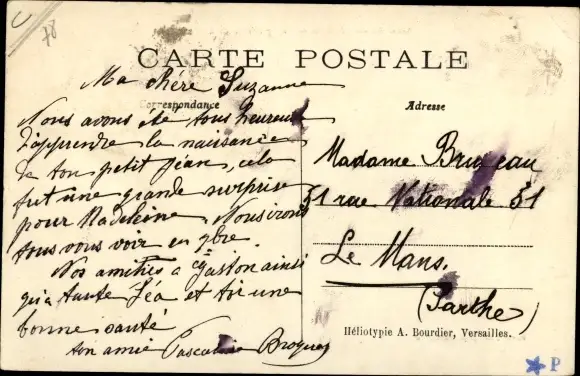 78
CARTE POSTALE
Ma chére Suzanne
Correspondance
Nous avons été tous heureux
d'apprendre la naissance
de ton petit Jéan, cela
fut une grande surprise
pour Madeleine. Nous irons
tous vous voir en 9bre.
Nos amitiés a Gaston ainsi
qu'a tante Léa et toi une
bonne santé
ton amie
Adresse
Madame
51 rue Nationale 51
Le Mans.
(Sarthe)
Héliotypie A. Bourdier, Versailles.
P